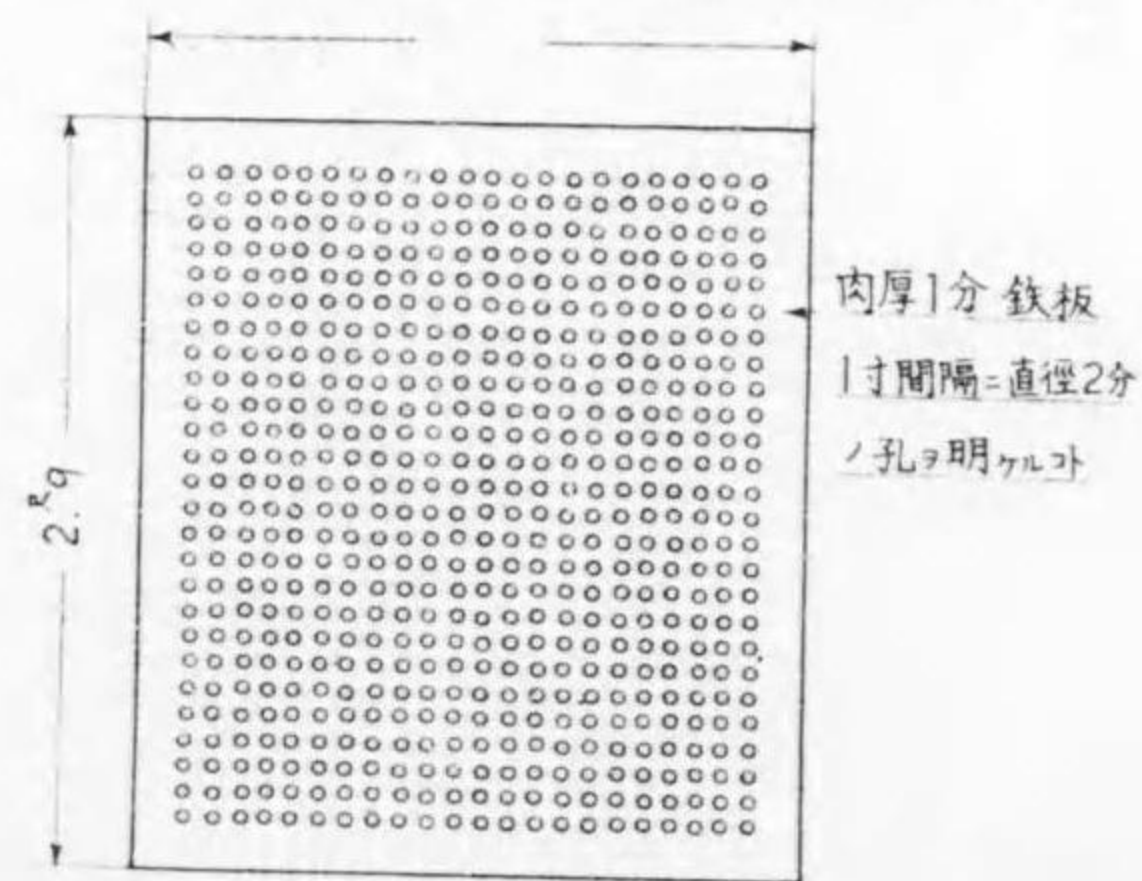 2.ᴿ9
肉厚1分 鉄板
1寸間隔ニ直徑2分
ノ孔ヲ明ケルコト